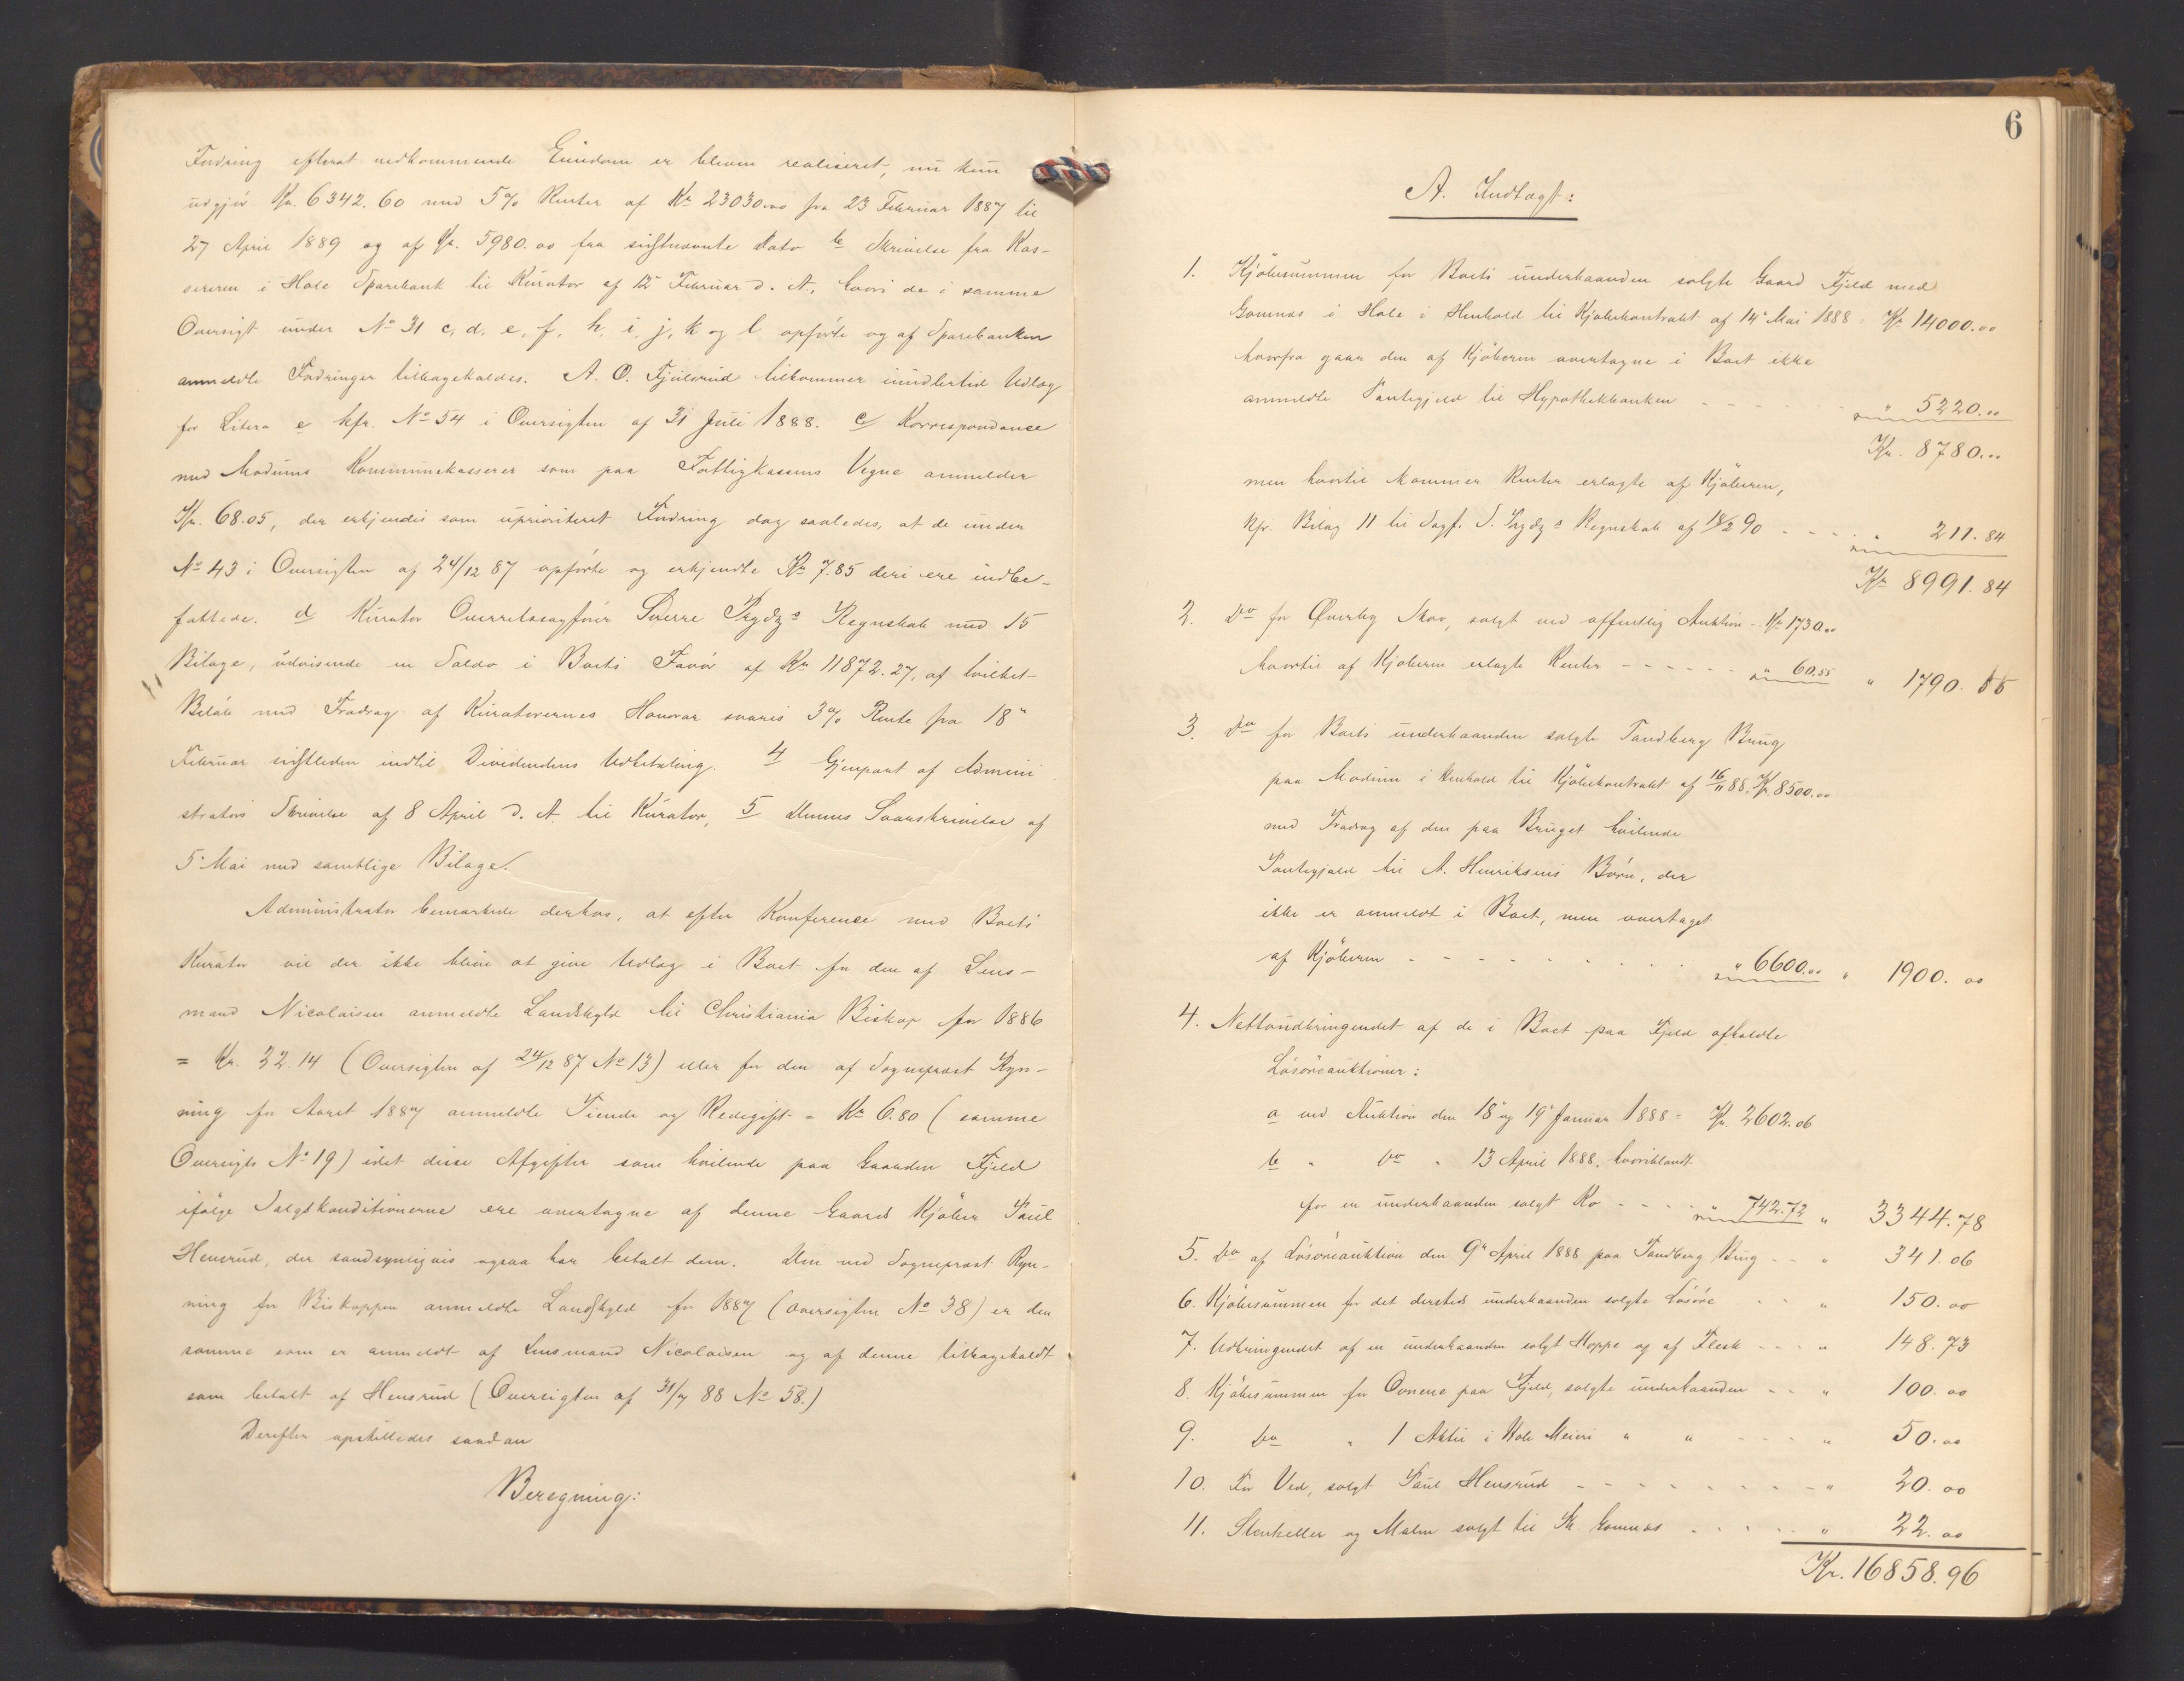 Fordring efterat vedkommende Eiendom er bleven realiseret, nu kun
udgjör Kr. 6342.60 med 5% Renter af Kr 23030.00 fra 23 Februar 1887 til
27 April 1889 og af Kr. 5980.00 fra sidstnævnte Dato b Skrivelse fra Kas-
sereren i Hole Sparebank til Kurator af 12" Februar d. A., hvori de i samme
Oversigt under No 31 c, d, e, f, h, i, j, k og l opförte og af Sparebanken
anmeldte Fordringer tilbagekaldes. A. O. Fjeldsrud tilkommer imidlertid Udlæg
for Litera e kfr. No 54 i Oversigten af 31 Juli 1888. c Korrespondance
med Modums Kommunekasserer som paa Fattigkassens Vegne anmelder
Kr. 68.05, der erkjendes som uprioriteret Fordring dog saaledes, at de under
No 43 i Oversigten af 24/12 87 opförte og erkjendte Kr 7.85 deri ere indbe-
fattede. d Kurator Overretssagförer Sverre Prydz's Regnskab med 15
Bilage, udvisende en Saldo i Boets Favör af Kr 11872.27, af hvilket
Belöb med Fradrag af Kuratorernes Honorar svares 3% Rente fra 18"
Februar sidstleden indtil Dividendens Udbetaling. 4 Gjenpart af Admini
strators Skrivelse af 8 April d. A. til Kurator, 5 dennes Svarskrivelse af
5' Mai med samtlige Bilage.
Administrator bemærkede derhos, at efter Konference med Boets
Kurator vil der ikke blive at give Udlæg i Boet for den af Lens-
mand Nicolaisen anmeldte Landskyld til Christiania Biskop for 1886
= Kr. 32.14 (Oversigten af 24/12 87 No 13) eller for den af Sogneprest Ryn-
ning for Aaret 1887 anmeldte Tiende og Redegift = Kr 6.80 (samme
Oversigts No 19) idet disse Afgifter som hvilende paa Gaarden Fjeld
ifölge Salgskonditionerne ere overtagne af denne Gaards Kjöber Paul
Hensrud, der sandsynligvis ogsaa har betalt dem. Den ved Sogneprest Ryn-
ning for Biskoppen anmeldte Landskyld for 1887 (oversigten No 38) er den
samme som er anmeldt af Lensmand Nicolaisen og af denne tilbagekaldt
som betalt af Hensrud (Oversigten af 31/7 88 No 58.)
Derefter opstilledes saadan
Beregning:
6
A. Indtægt:
1. Kjöbesummen for Boets underhaanden solgte Gaard Fjeld med
Gomnæs i Hole i Henhold til Kjöbekontrakt af 14' Mai 1888 = Kr 14000.00
hvorfra gaar den af Kjöberen overtagne i Boet ikke
anmeldte Pantegjeld til Hypothekbanken - - - " 5220.00
Kr. 8780.00
men hvortil kommer Renter erlagte af Kjöberen,
kfr. Bilag 11 til Sagf. S. Prydz's Regnskab af 18/2 90 - - - " 211.84
Kr 8991.84
2. Do for Överby Skov, solgt ved offentlig Auktion - Kr 1730.00
hvortil af Kjöberen erlagte Renter - - - - - - " 60.55 " 1790.55
3. Do for Boets underhaanden solgte Tandberg Brug
paa Modum i Henhold til Kjöbekontrakt af 16/11 88. Kr. 8500.00
med Fradrag af den paa Bruget hvilende
Pantegjæld til A. Henriksens Börn, der
ikke er anmeldt i Boet, men overtaget
af Kjöberen - - - - - - - " 6600.00 " 1900.00
4. Nettoudbringendet af de i Boet paa Fjeld afholdte
Lösöreauktioner:
a ved Auktion den 18' og 19' Januar 1888 = Kr. 2602.06
b " Do " 13 April 1888, hvoriblandt
for en underhaanden solgt Ko - - - " 742.72 " 3344.78
5. Do af Lösöreauktion den 9" April 1888 paa Tandberg Brug - - " 341.06
6. Kjöbesummen for det dersteds underhaanden solgte Lösöre - - " 150.00
7. Udbringendet af en underhaanden solgt Hoppe og af Flesk - - - " 148.73
8. Kjöbesummen for Ovnene paa Fjeld, solgte underhaanden - - " 100.00
9. Do " 1 Aktie i Hole Meieri " " - - - " 50.00
10. For Ved, solgt Paul Hensrud - - - - - - - - " 20.00
11. Stenheller og Malm solgt til Gomnæs - - - - " 22.00
Kr. 16858.96